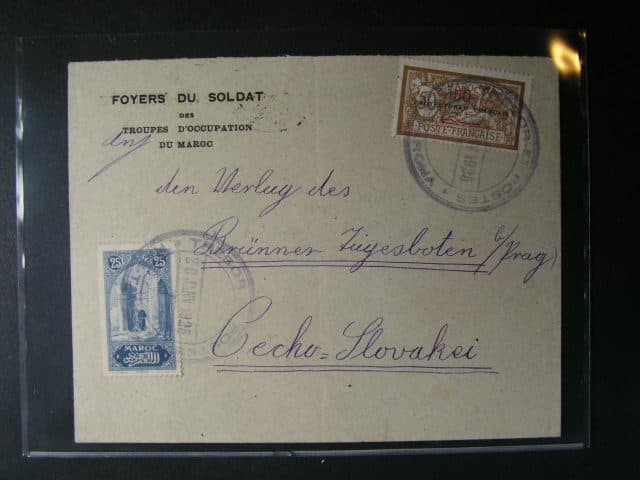 FOYERS DU SOLDAT
DES
TROUPES D'OCCUPATION
DU MAROC
An
den Verlag des
Brünner Tagesboten b/Prag)
Cecho=Slovakei
POSTE FRANÇAISE
25 25
MAROC
POSTES
JANV 1926